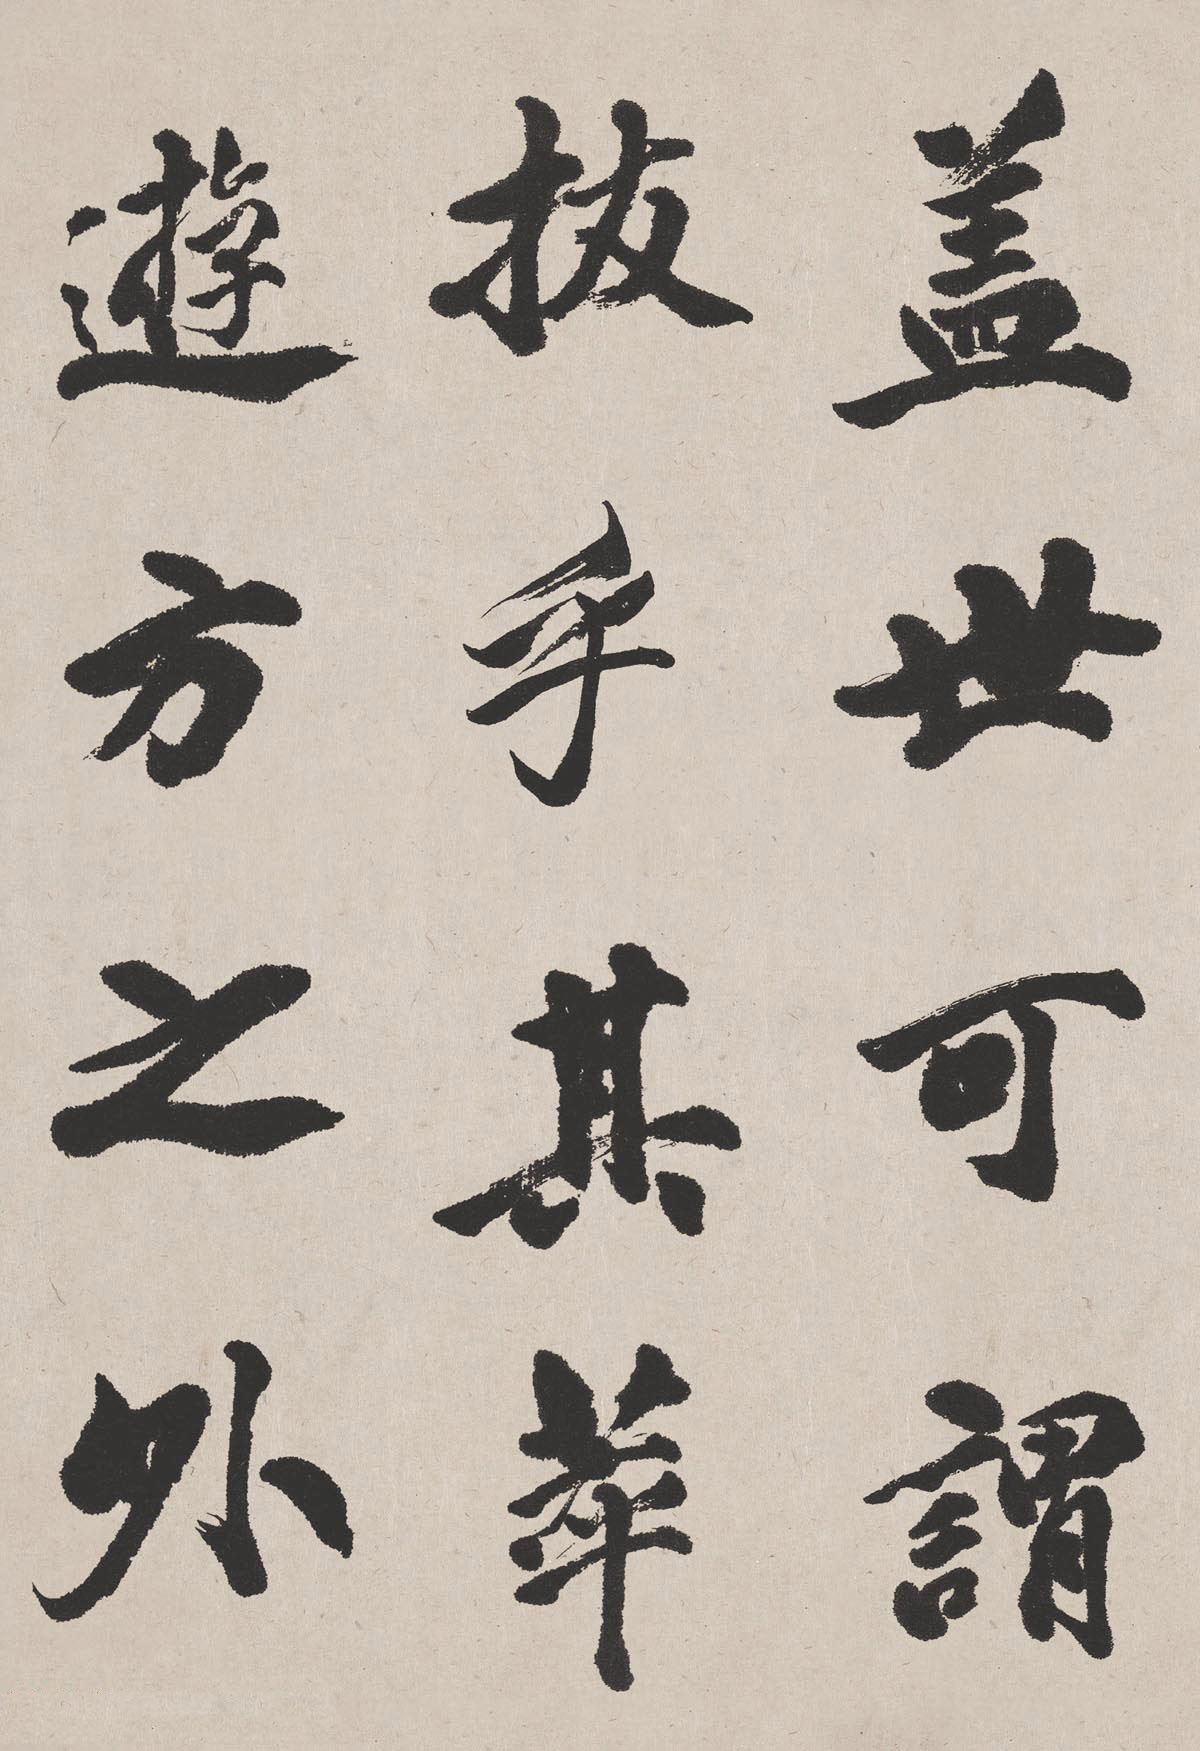 盖世可謂
拔乎其萃
遊方之外